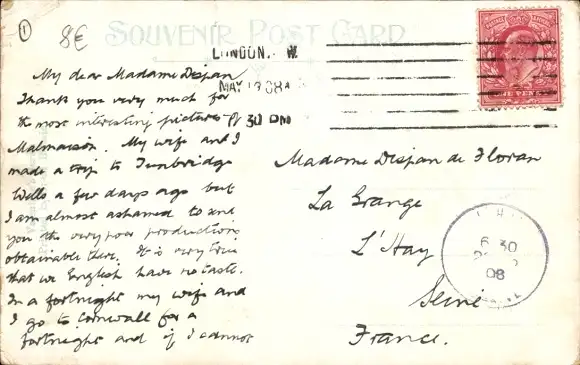 1
8€
SOUVENIR POST CARD
LONDON. W.
MAY 08
30 PM
My dear Madame Dispan
Thank you very much for
the most interesting pictures of
Malmaison. My wife and I
made a trip to Tunbridge
Wells a few days ago but
I am almost ashamed to send
you the very poor productions
obtainable there. It is very true
that we English have no taste.
In a fortnight my wife and
I go to Cornwall for a
fortnight and if I cannot
Madame Dispan de Floran
La Grange
L'Hay
Seine
France.
6 30
08